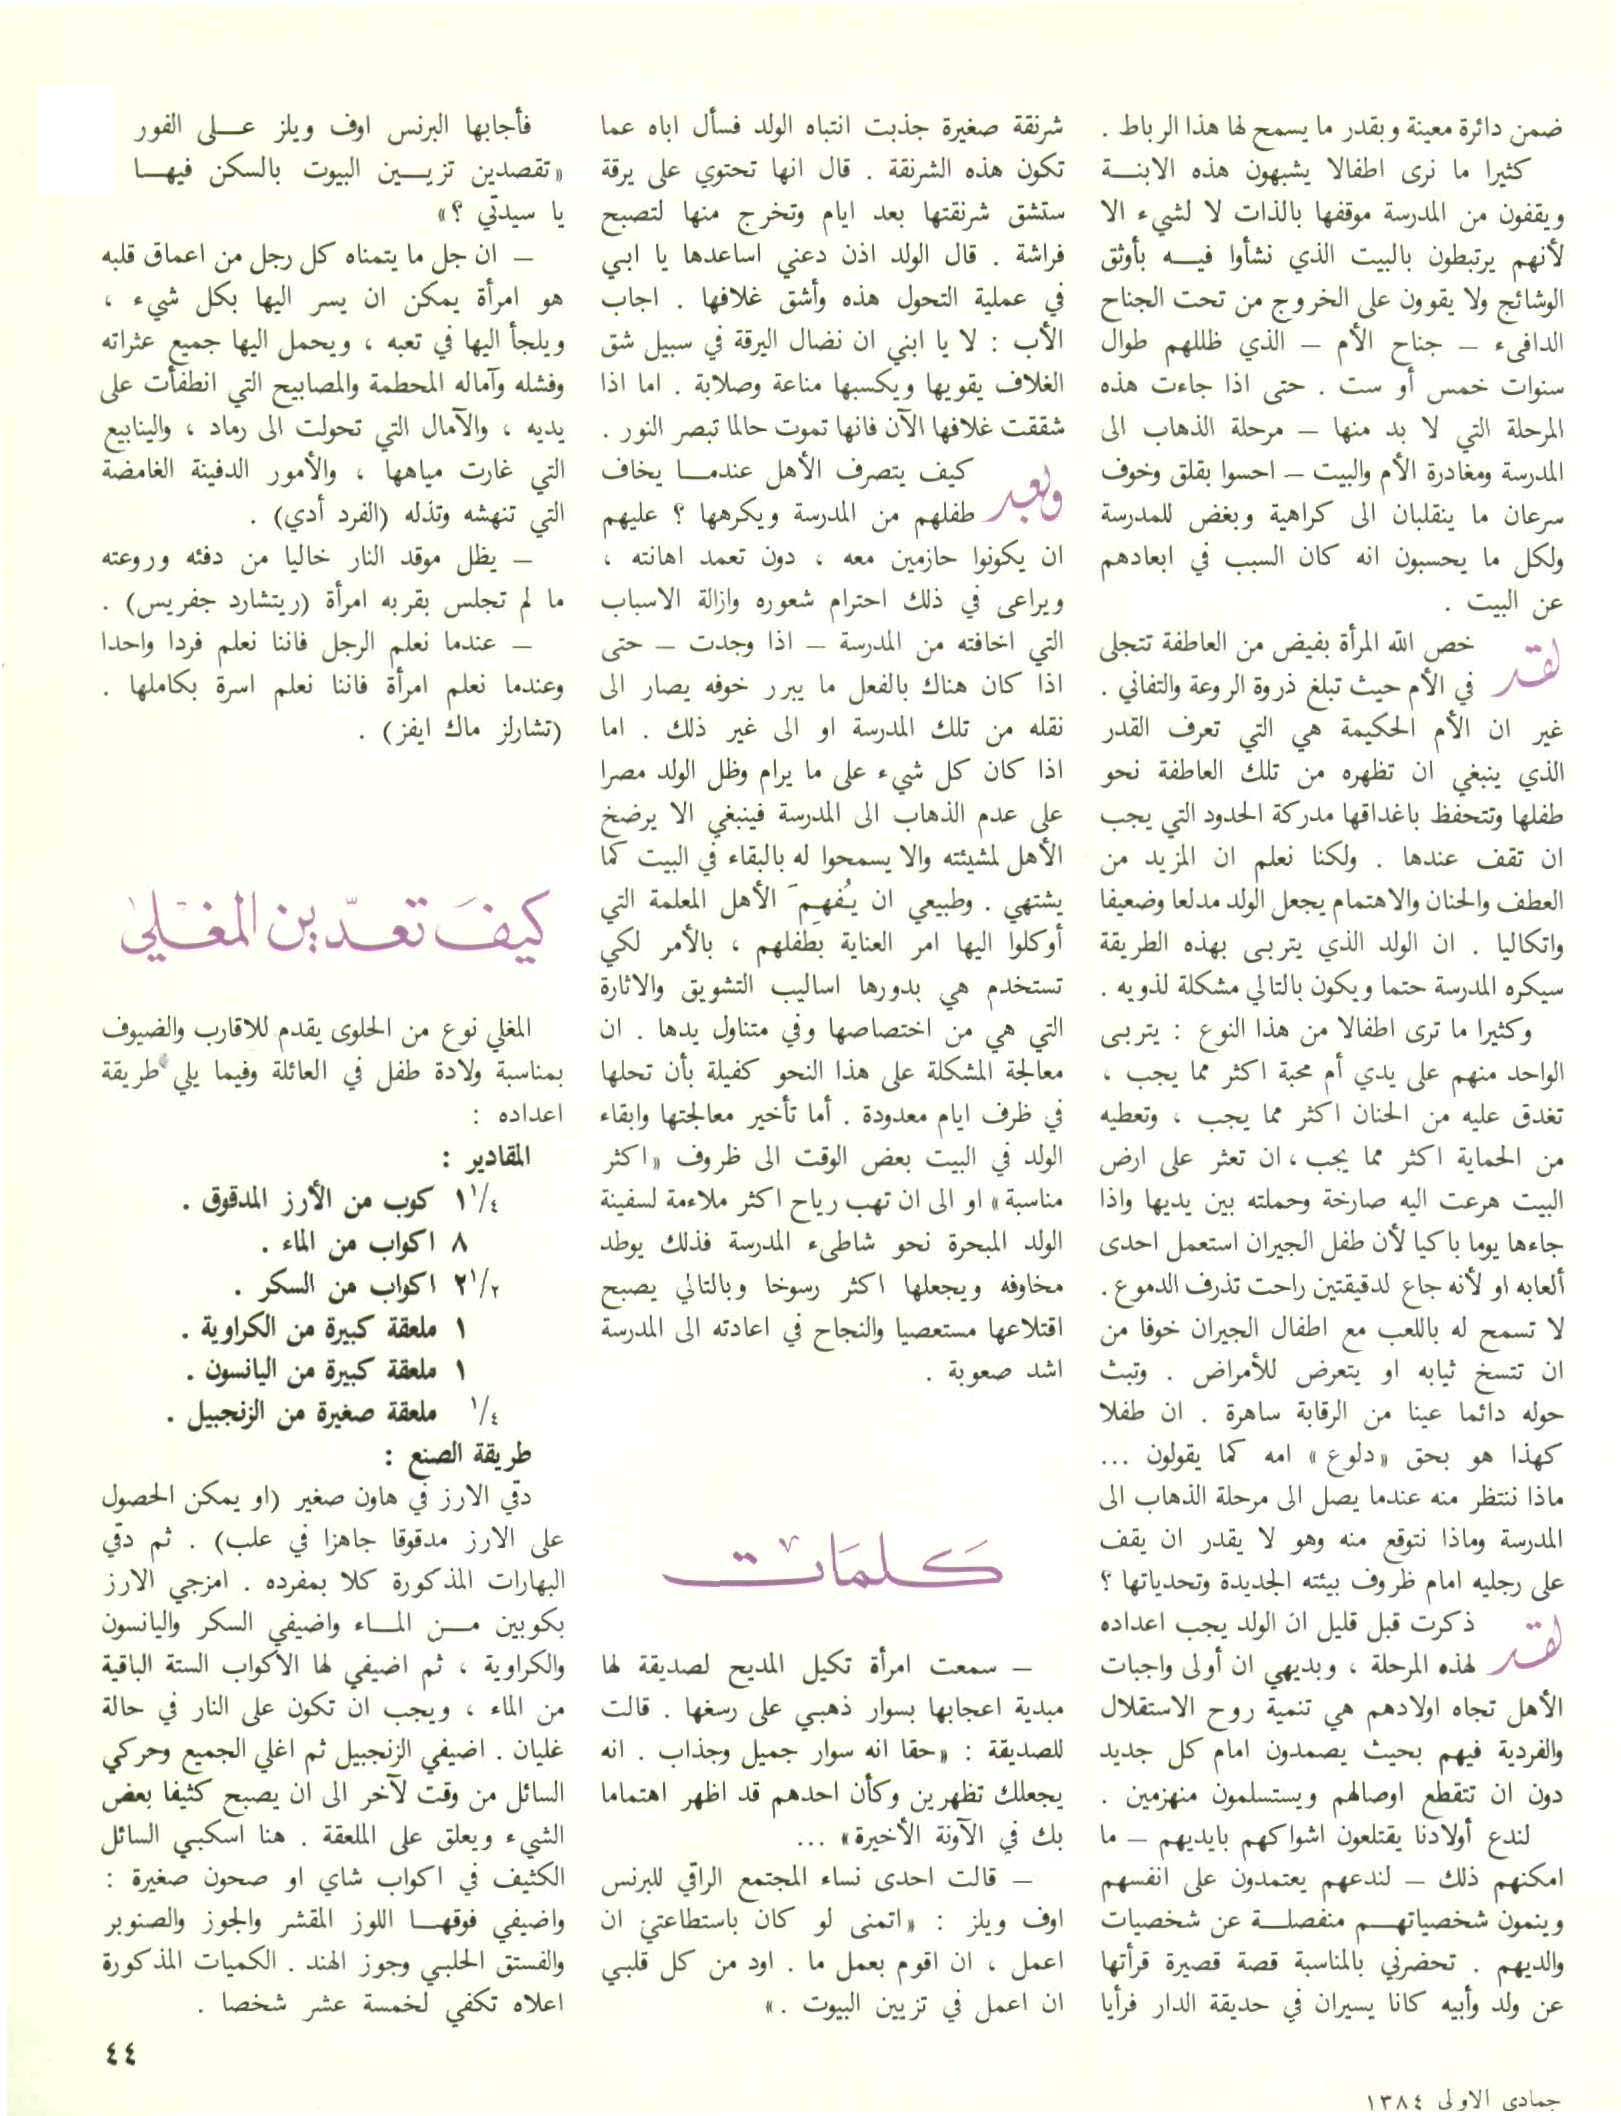 ضمن دائرة معينة وبقدر ما يسمح لها هذا الرباط .
كثيرا ما نرى اطفالا يشبهون هذه الابنــة
ويقفون من المدرسة موقفها بالذات لا لشيء الا
لأنهم يرتبطون بالبيت الذي نشأوا فيــه بأوثق
الوشائج ولا يقوون على الخروج من تحت الجناح
الدافىء – جناح الأم – الذي ظللهم طوال
سنوات خمس أو ست . حتى اذا جاءت هذه
المرحلة التي لا بد منها – مرحلة الذهاب الى
المدرسة ومغادرة الأم والبيت – احسوا بقلق وخوف
سرعان ما ينقلبان الى كراهية وبغض للمدرسة
ولكل ما يحسبون انه كان السبب في ابعادهم
عن البيت .
لقد خص الله المرأة بفيض من العاطفة تتجلى
في الأم حيث تبلغ ذروة الروعة والتفاني .
غير ان الأم الحكيمة هي التي تعرف القدر
الذي ينبغي ان تظهره من تلك العاطفة نحو
طفلها وتتحفظ باغداقها مدركة الحدود التي يجب
ان تقف عندها . ولكنا نعلم ان المزيد من
العطف والحنان والاهتمام يجعل الولد مدلعا وضعيفا
واتكاليا . ان الولد الذي يتربى بهذه الطريقة
سيكره المدرسة حتما ويكون بالتالي مشكلة لذويه .
وكثيرا ما ترى اطفالا من هذا النوع : يتربى
الواحد منهم على يدي أم محبة اكثر مما يجب ،
تغدق عليه من الحنان اكثر مما يجب ، وتعطيه
من الحماية اكثر مما يجب، ان تعثر على ارض
البيت هرعت اليه صارخة وحملته بين يديها واذا
جاءها يوما باكيا لأن طفل الجيران استعمل احدى
ألعابه او لأنه جاع لدقيقتين راحت تذرف الدموع .
لا تسمح له باللعب مع اطفال الجيران خوفا من
ان تتسخ ثيابه او يتعرض للأمراض . وتبث
حوله دائما عينا من الرقابة ساهرة . ان طفلا
كهذا هو بحق «دلوع» امه كما يقولون ...
ماذا ننتظر منه عندما يصل الى مرحلة الذهاب الى
المدرسة وماذا نتوقع منه وهو لا يقدر ان يقف
على رجليه امام ظروف بيئته الجديدة وتحدياتها ؟
لقد ذكرت قبل قليل ان الولد يجب اعداده
لهذه المرحلة ، وبديهي ان أولى واجبات
الأهل تجاه اولادهم هي تنمية روح الاستقلال
والفردية فيهم بحيث يصمدون امام كل جديد
دون ان تتقطع اوصالهم ويستسلمون منهزمين .
لندع أولادنا يقتلعون اشواكهم بايديهم – ما
امكنهم ذلك – لندعهم يعتمدون على انفسهم
وينمون شخصياتهــم منفصلــة عن شخصيات
والديهم . تحضرني بالمناسبة قصة قصيرة قرأتها
عن ولد وأبيه كانا يسيران في حديقة الدار فرأيا
شرنقة صغيرة جذبت انتباه الولد فسأل اباه عما
تكون هذه الشرنقة . قال انها تحتوي على يرقة
ستشق شرنقتها بعد ايام وتخرج منها لتصبح
فراشة . قال الولد اذن دعني اساعدها يا ابي
في عملية التحول هذه وأشق غلافها . اجاب
الأب : لا يا ابني ان نضال اليرقة في سبيل شق
الغلاف يقويها ويكسبها مناعة وصلابة . اما اذا
شققت غلافها الآن فانها تموت حالما تبصر النور .
وبعد كيف يتصرف الأهل عندمــا يخاف
طفلهم من المدرسة ويكرهها ؟ عليهم
ان يكونوا حازمين معه ، دون تعمد اهانته ،
ويراعى في ذلك احترام شعوره وازالة الاسباب
التي اخافته من المدرسة – اذا وجدت – حتى
اذا كان هناك بالفعل ما يبرر خوفه يصار الى
نقله من تلك المدرسة او الى غير ذلك . اما
اذا كان كل شيء على ما يرام وظل الولد مصرا
على عدم الذهاب الى المدرسة فينبغي الا يرضخ
الأهل لمشيئته والا يسمحوا له بالبقاء في البيت كما
يشتهي . وطبيعي ان يُفهِمَ الأهل المعلمة التي
أوكلوا اليها امر العناية بطفلهم ، بالأمر لكي
تستخدم هي بدورها اساليب التشويق والاثارة
التي هي من اختصاصها وفي متناول يدها . ان
معالجة المشكلة على هذا النحو كفيلة بأن تحلها
في ظرف ايام معدودة . أما تأخير معالجتها وابقاء
الولد في البيت بعض الوقت الى ظروف «اكثر
مناسبة» او الى ان تهب رياح اكثر ملاءمة لسفينة
الولد المبحرة نحو شاطىء المدرسة فذلك يوطد
مخاوفه ويجعلها اكثر رسوخا وبالتالي يصبح
اقتلاعها مستعصيا والنجاح في اعادته الى المدرسة
اشد صعوبة .
كلمات
– سمعت امرأة تكيل المديح لصديقة لها
مبدية اعجابها بسوار ذهبي على رسغها . قالت
للصديقة : «حقا انه سوار جميل وجذاب . انه
يجعلك تظهرين وكأن احدهم قد اظهر اهتماما
بك في الآونة الأخيرة» ...
– قالت احدى نساء المجتمع الراقي للبرنس
اوف ويلز : «اتمنى لو كان باستطاعتي ان
اعمل ، ان اقوم بعمل ما . اود من كل قلبي
ان اعمل في تزيين البيوت .»
فأجابها البرنس اوف ويلز عــلى الفور
«تقصدين تزيــين البيوت بالسكن فيهــا
يا سيدتي ؟»
– ان جل ما يتمناه كل رجل من اعماق قلبه
هو امرأة يمكن ان يسر اليها بكل شيء ،
ويلجأ اليها في تعبه ، ويحمل اليها جميع عثراته
وفشله وآماله المحطمة والمصابيح التي انطفأت على
يديه ، والآمال التي تحولت الى رماد ، والينابيع
التي غارت مياهها ، والأمور الدفينة الغامضة
التي تنهشه وتذله (الفرد أدي) .
– يظل موقد النار خاليا من دفئه وروعته
ما لم تجلس بقربه امرأة (ريتشارد جفريس) .
– عندما نعلم الرجل فاننا نعلم فردا واحدا
وعندما نعلم امرأة فاننا نعلم اسرة بكاملها .
(تشارلز ماك ايفز) .
كيف تعدّين المغلي
المغلي نوع من الحلوى يقدم للاقارب والضيوف
بمناسبة ولادة طفل في العائلة وفيما يلي طريقة
اعداده :
المقادير :
١ ١/٤ كوب من الأرز المدقوق .
٨ اكواب من الماء .
٢ ١/٢ اكواب من السكر .
١ ملعقة كبيرة من الكراوية .
١ ملعقة كبيرة من اليانسون .
١/٤ ملعقة صغيرة من الزنجبيل .
طريقة الصنع :
دقي الارز في هاون صغير (او يمكن الحصول
على الارز مدقوقا جاهزا في علب) . ثم دقي
البهارات المذكورة كلا بمفرده . امزجي الارز
بكوبين مــن المــاء واضيفي السكر واليانسون
والكراوية ، ثم اضيفي لها الأكواب الستة الباقية
من الماء ، ويجب ان تكون على النار في حالة
غليان . اضيفي الزنجبيل ثم اغلي الجميع وحركي
السائل من وقت لآخر الى ان يصبح كثيفا بعض
الشيء ويعلق على الملعقة . هنا اسكبي السائل
الكثيف في اكواب شاي او صحون صغيرة :
واضيفي فوقهــا اللوز المقشر والجوز والصنوبر
والفستق الحلبي وجوز الهند . الكميات المذكورة
اعلاه تكفي لخمسة عشر شخصا .
٤٤
جمادى الاولى ١٣٨٤